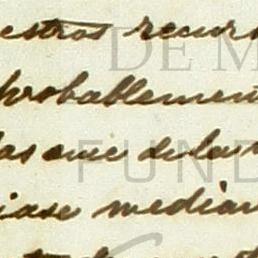 estros recurs
probablemen
las que de la
iase median